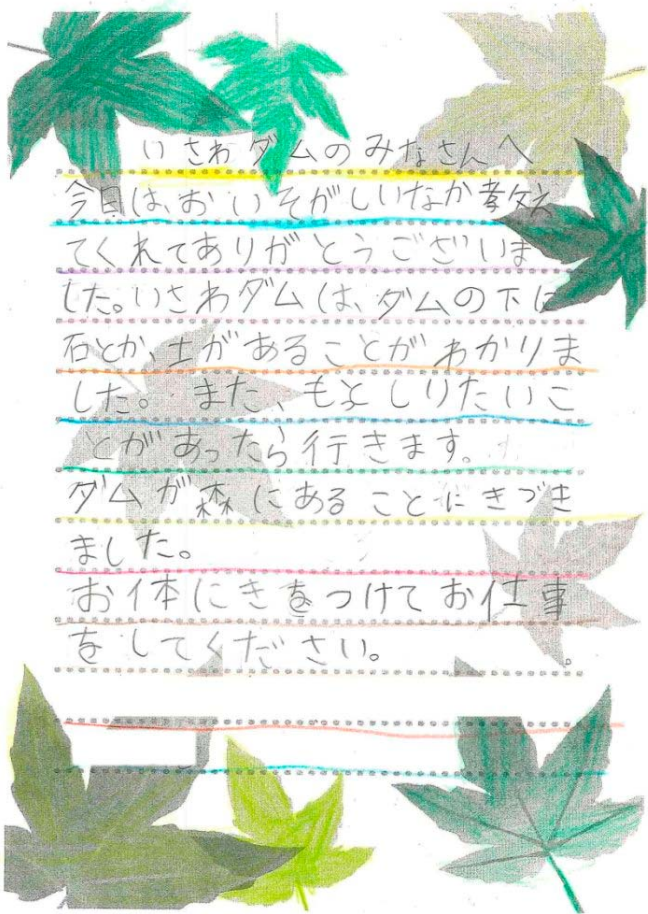 いさわダムのみなさんへ
今日は、おいそがしいなか教え
てくれてありがとうございま
した。いさわダムは、ダムの下に
石とか、土があることがわかりま
した。また、もっとしりたいこ
とがあったら行きます。
ダムが森にあることにきづき
ました。
お体にきをつけてお仕事
をしてください。